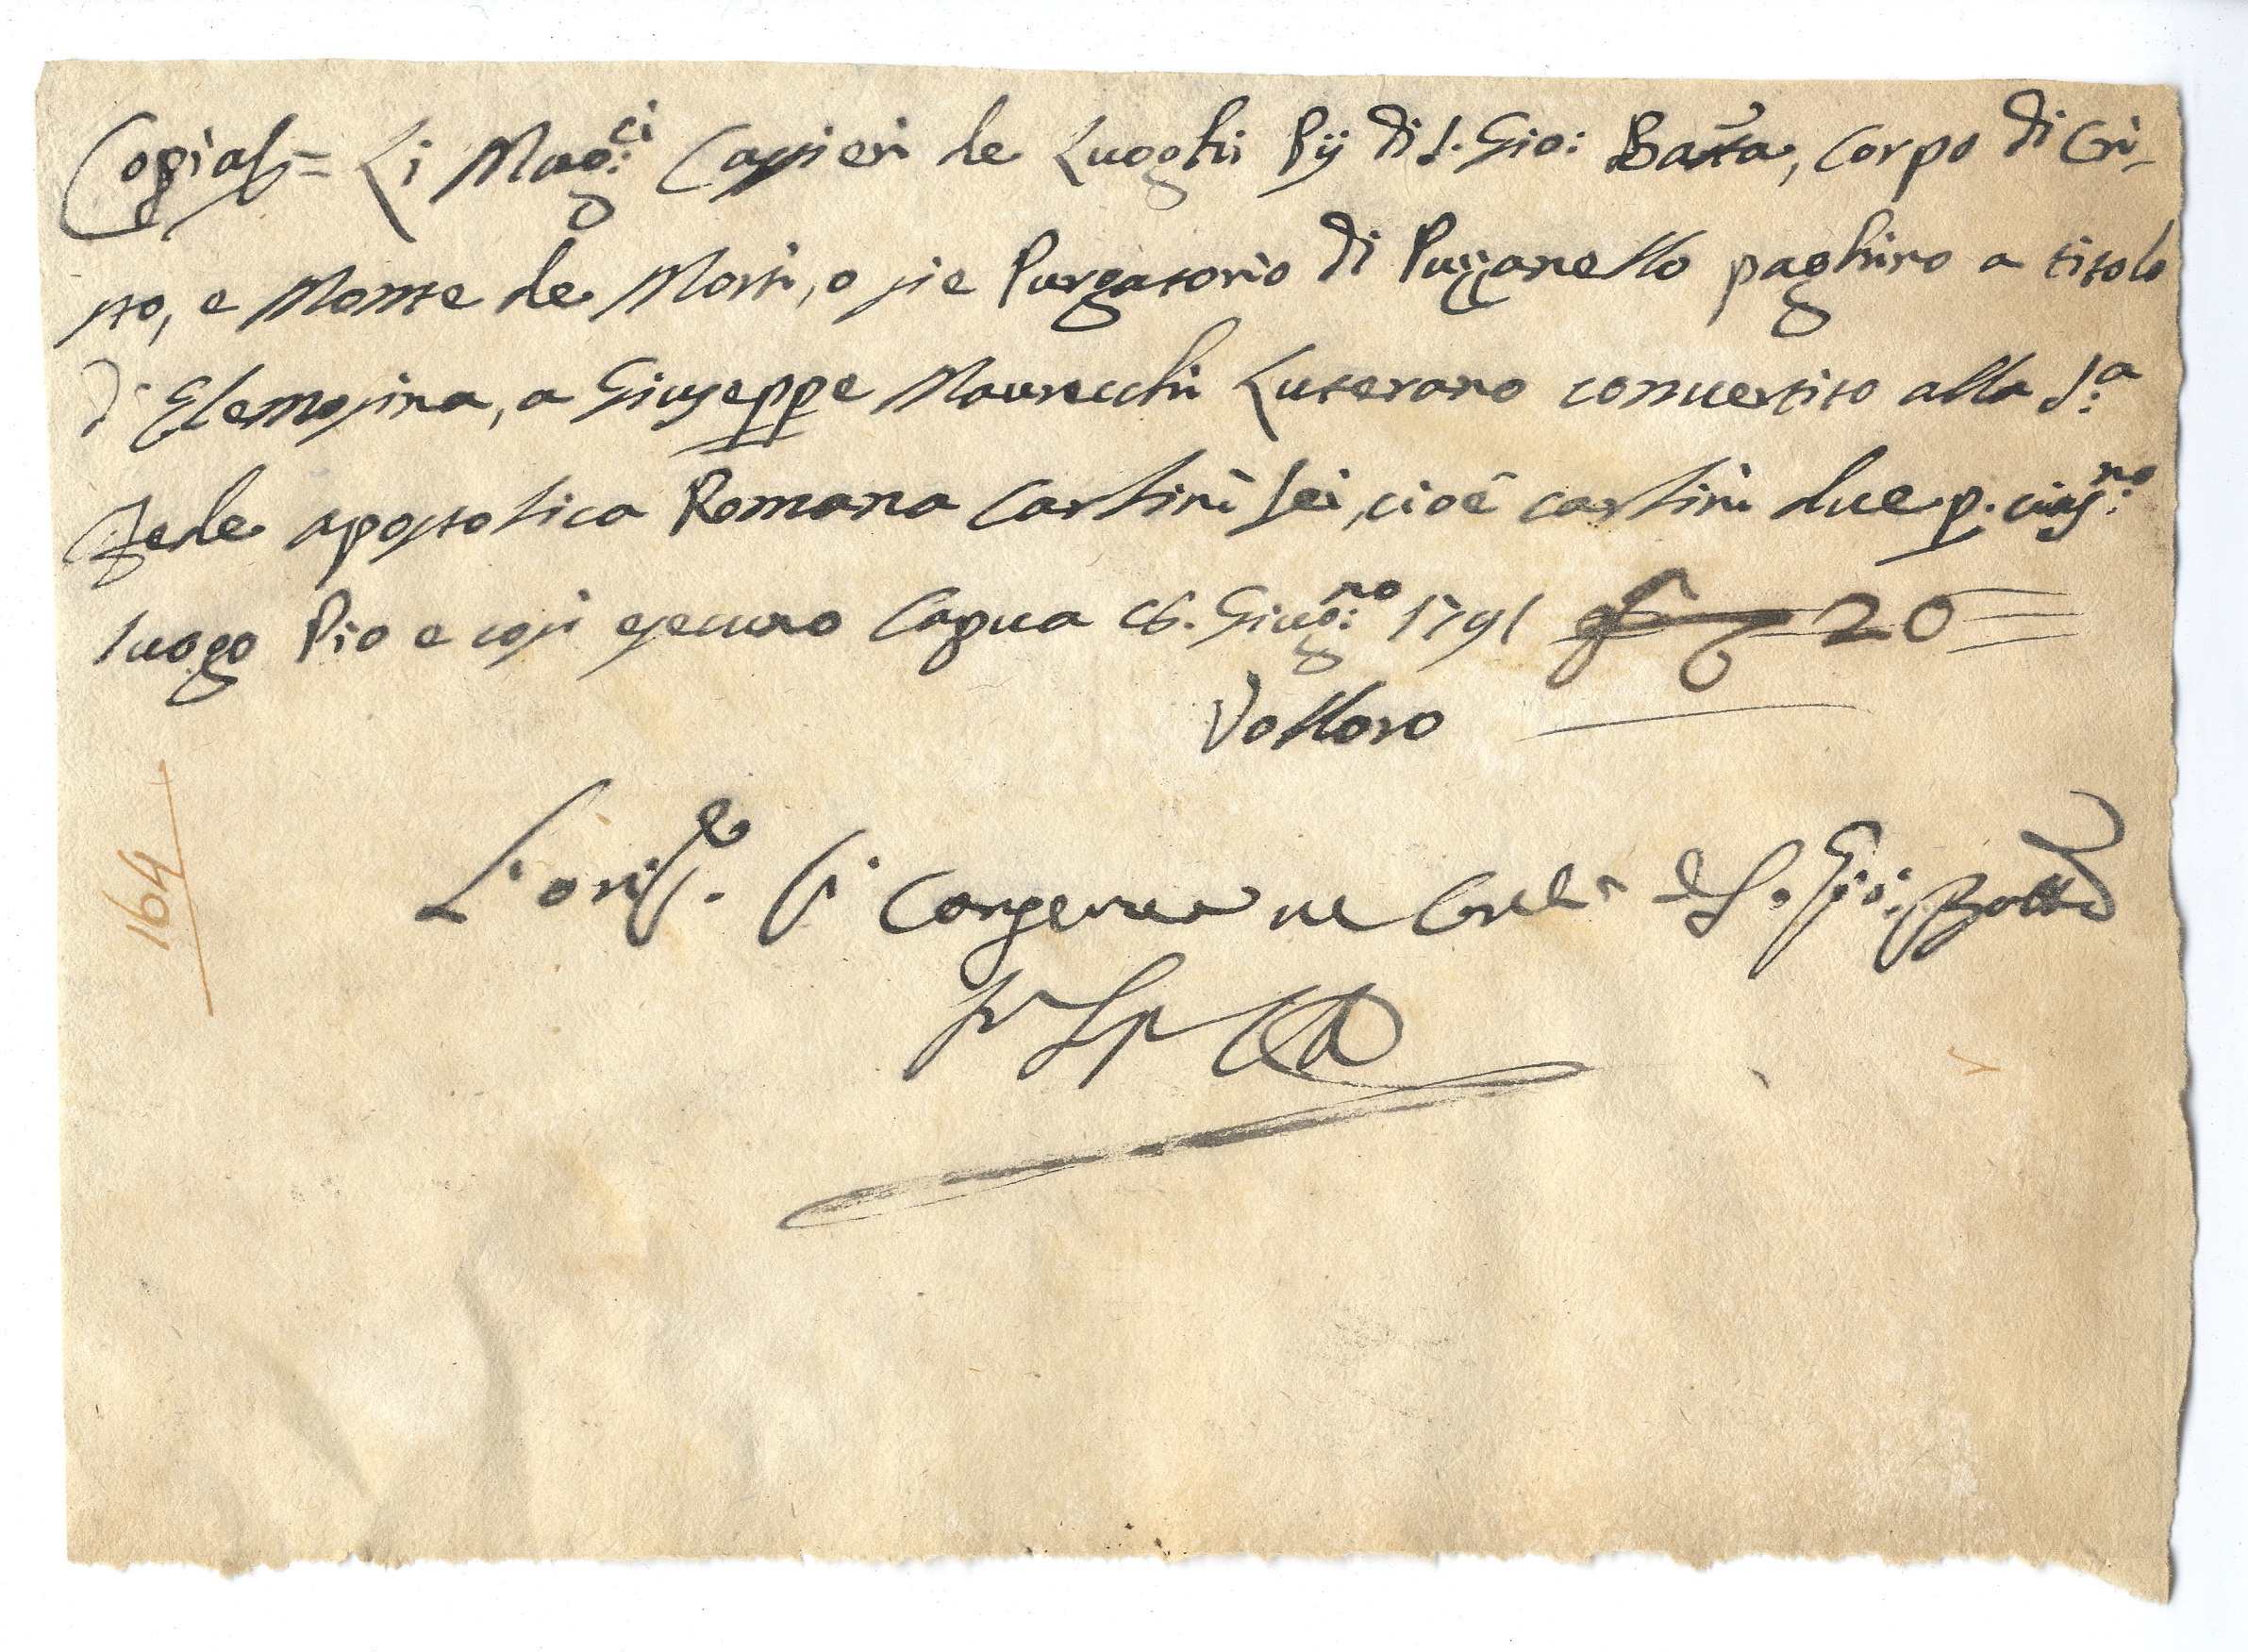 Copia = Li Mag:ci Cassieri de Luoghi Pij di S. Gio: Batta, Corpo di Cri-
sto, e Monte de Morti, o sie Purgatorio di Puzzanello paghino a titolo
d'Elemosina, a Giuseppe Luterano convertito alla S:a
Fede apostolica Romana Carlini sei, cioè carlini due p. ciasc:no
luogo Pio e così eseguano Capua 16. Giug:no 1791 20
Volloro
L'orig.le si conserva ne di S. Gio: Batta
164